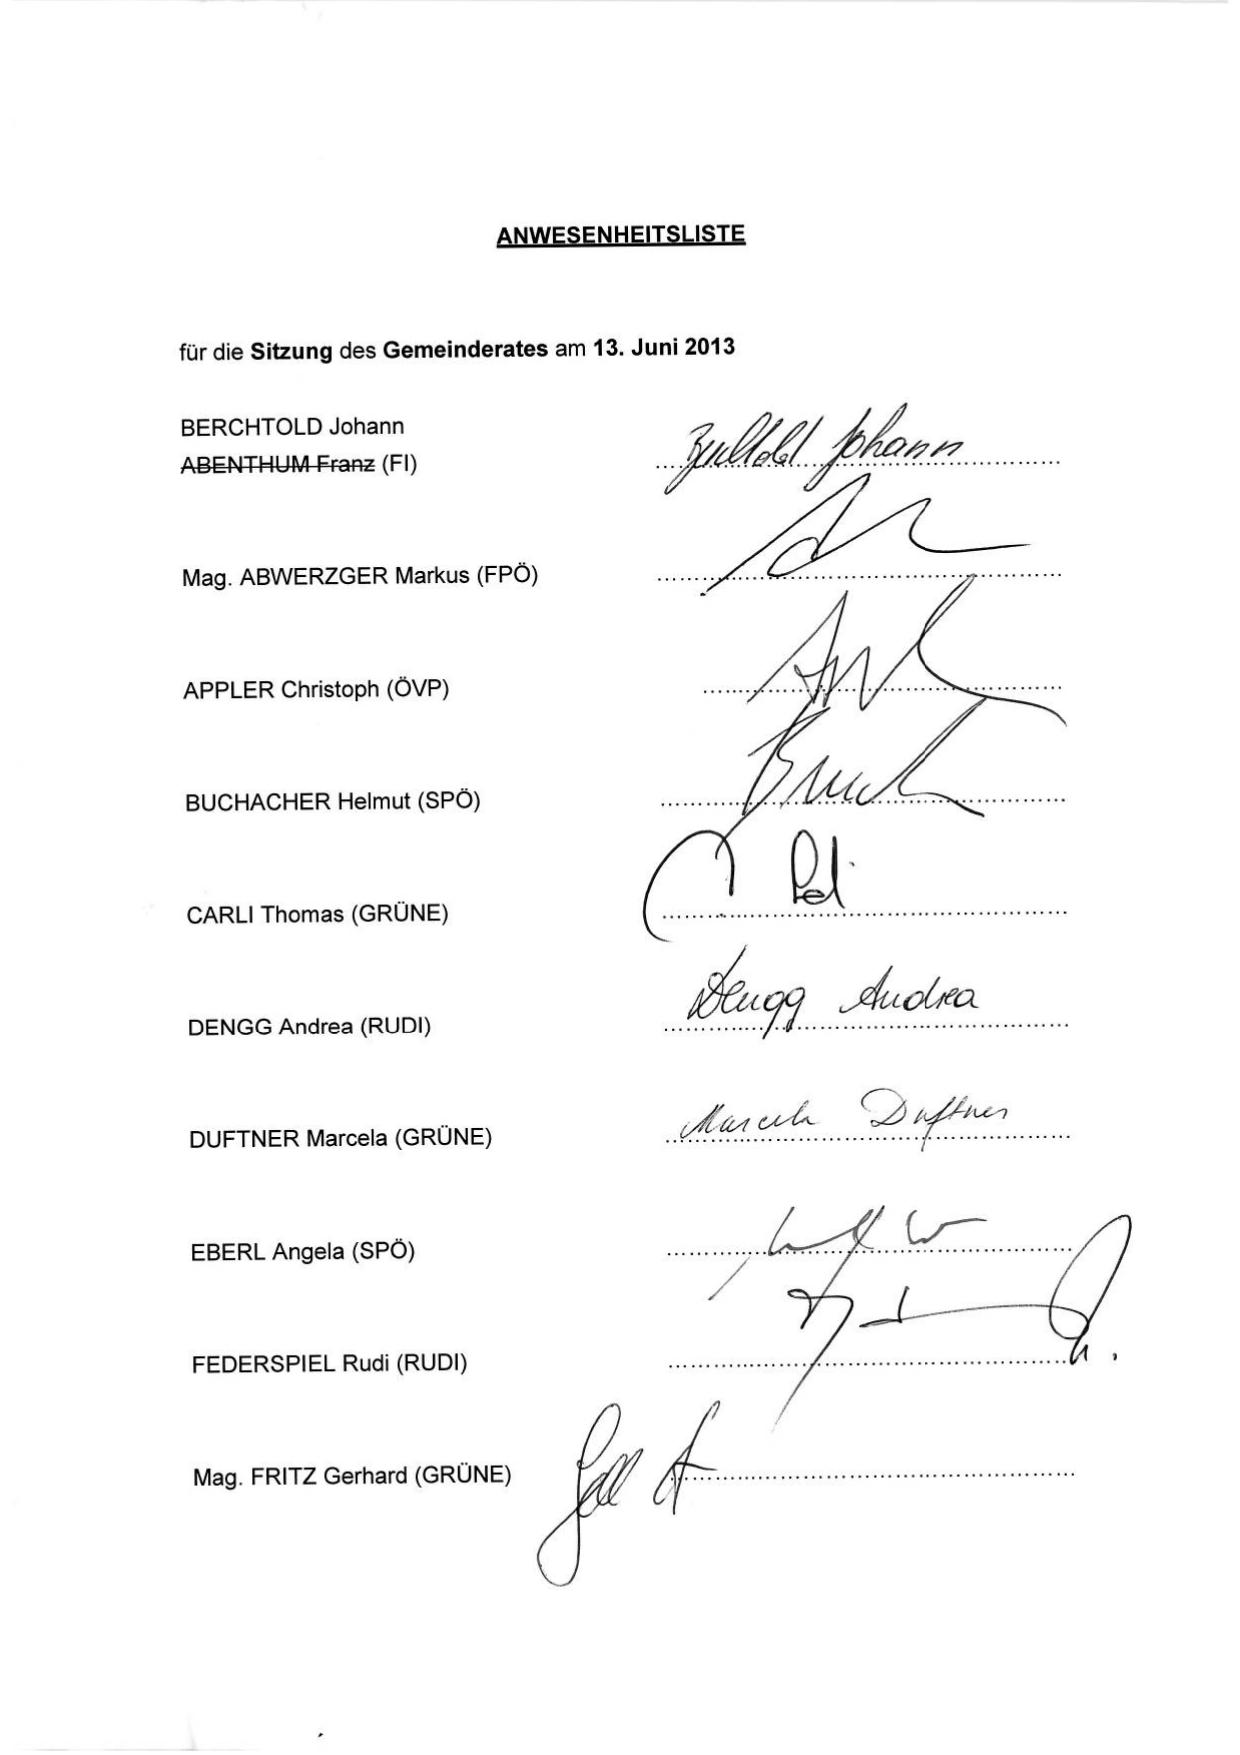 ANWESENHEITSLISTE
für die Sitzung des Gemeinderates am 13. Juni 2013
BERCHTOLD Johann
ABENTHUM Franz (FI) Berchtold Johann
Mag. ABWERZGER Markus (FPÖ)
APPLER Christoph (ÖVP)
BUCHACHER Helmut (SPÖ)
CARLI Thomas (GRÜNE)
DENGG Andrea (RUDI) Dengg Andrea
DUFTNER Marcela (GRÜNE) Marcela Duftner
EBERL Angela (SPÖ)
FEDERSPIEL Rudi (RUDI)
Mag. FRITZ Gerhard (GRÜNE)